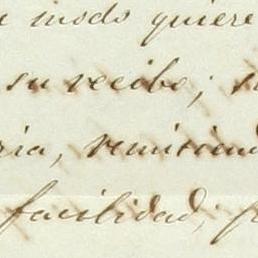 modo quiere
su recibo;
ria, remitiend
facilidad;